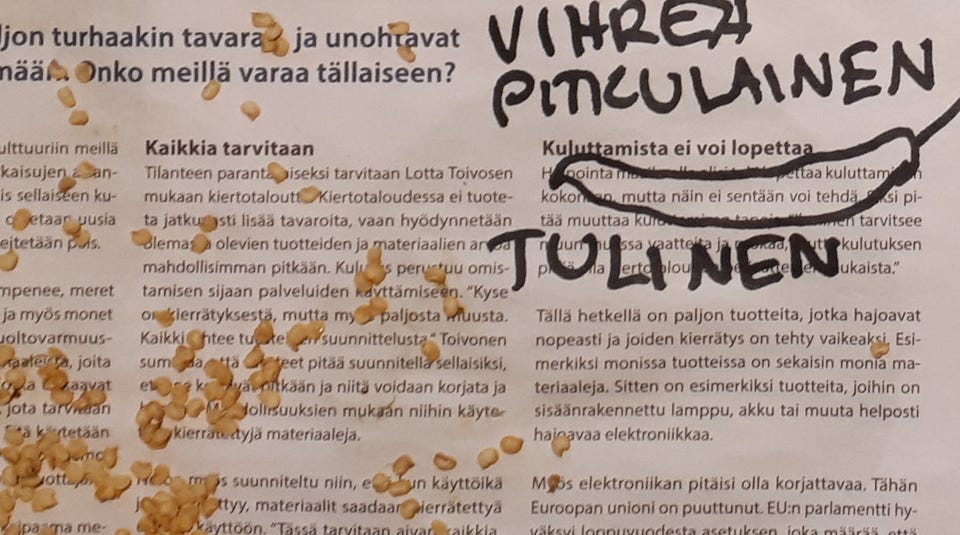 ljon turhaakin tavaraa ja unohtavat
Onko meillä varaa tällaiseen?
VIHREÄ
PITKULAINEN
TULINEN
ulttuuriin meillä
kaisujen
is sellaiseen ku-
uusia
eitetään pois.
mpenee, meret
ja myös monet
uoltovarmuus-
joita
jota tarvitaan
käytetään
Kaikkia tarvitaan
Tilanteen parantamiseksi tarvitaan Lotta Toivosen
mukaan kiertotaloutta. Kiertotaloudessa ei tuote-
ta jatkuvasti lisää tavaroita, vaan hyödynnetään
olemassa olevien tuotteiden ja materiaalien arvoa
mahdollisimman pitkään. Kulutus perustuu omis-
tamisen sijaan palveluiden käyttämiseen. "Kyse
on kierrätyksestä, mutta myös paljosta muusta.
Kaikki lähtee tuotteiden suunnittelusta." Toivonen
että tuotteet pitää suunnitella sellaisiksi,
että ne kestävät pitkään ja niitä voidaan korjata ja
Mahdollisuuksien mukaan niihin käyte-
kierrätettyjä materiaaleja.
myös suunniteltu niin, että kun käyttöikä
materiaalit saadaan kierrätettyä
käyttöön. "Tässä tarvitaan aivan kaikkia
Kuluttamista ei voi lopettaa
lopettaa kuluttamisen
kokonaan, mutta näin ei sentään voi tehdä. Siksi pi-
tää muuttaa tarvitsee
vaatteita ja ruokaa, mutta kulutuksen
Tällä hetkellä on paljon tuotteita, jotka hajoavat
nopeasti ja joiden kierrätys on tehty vaikeaksi. Esi-
merkiksi monissa tuotteissa on sekaisin monia ma-
teriaaleja. Sitten on esimerkiksi tuotteita, joihin on
sisäänrakennettu lamppu, akku tai muuta helposti
hajoavaa elektroniikkaa.
Myös elektroniikan pitäisi olla korjattavaa. Tähän
Euroopan unioni on puuttunut. EU:n parlamentti hy-
väksyi loppuvuodesta asetuksen, joka määrää, että